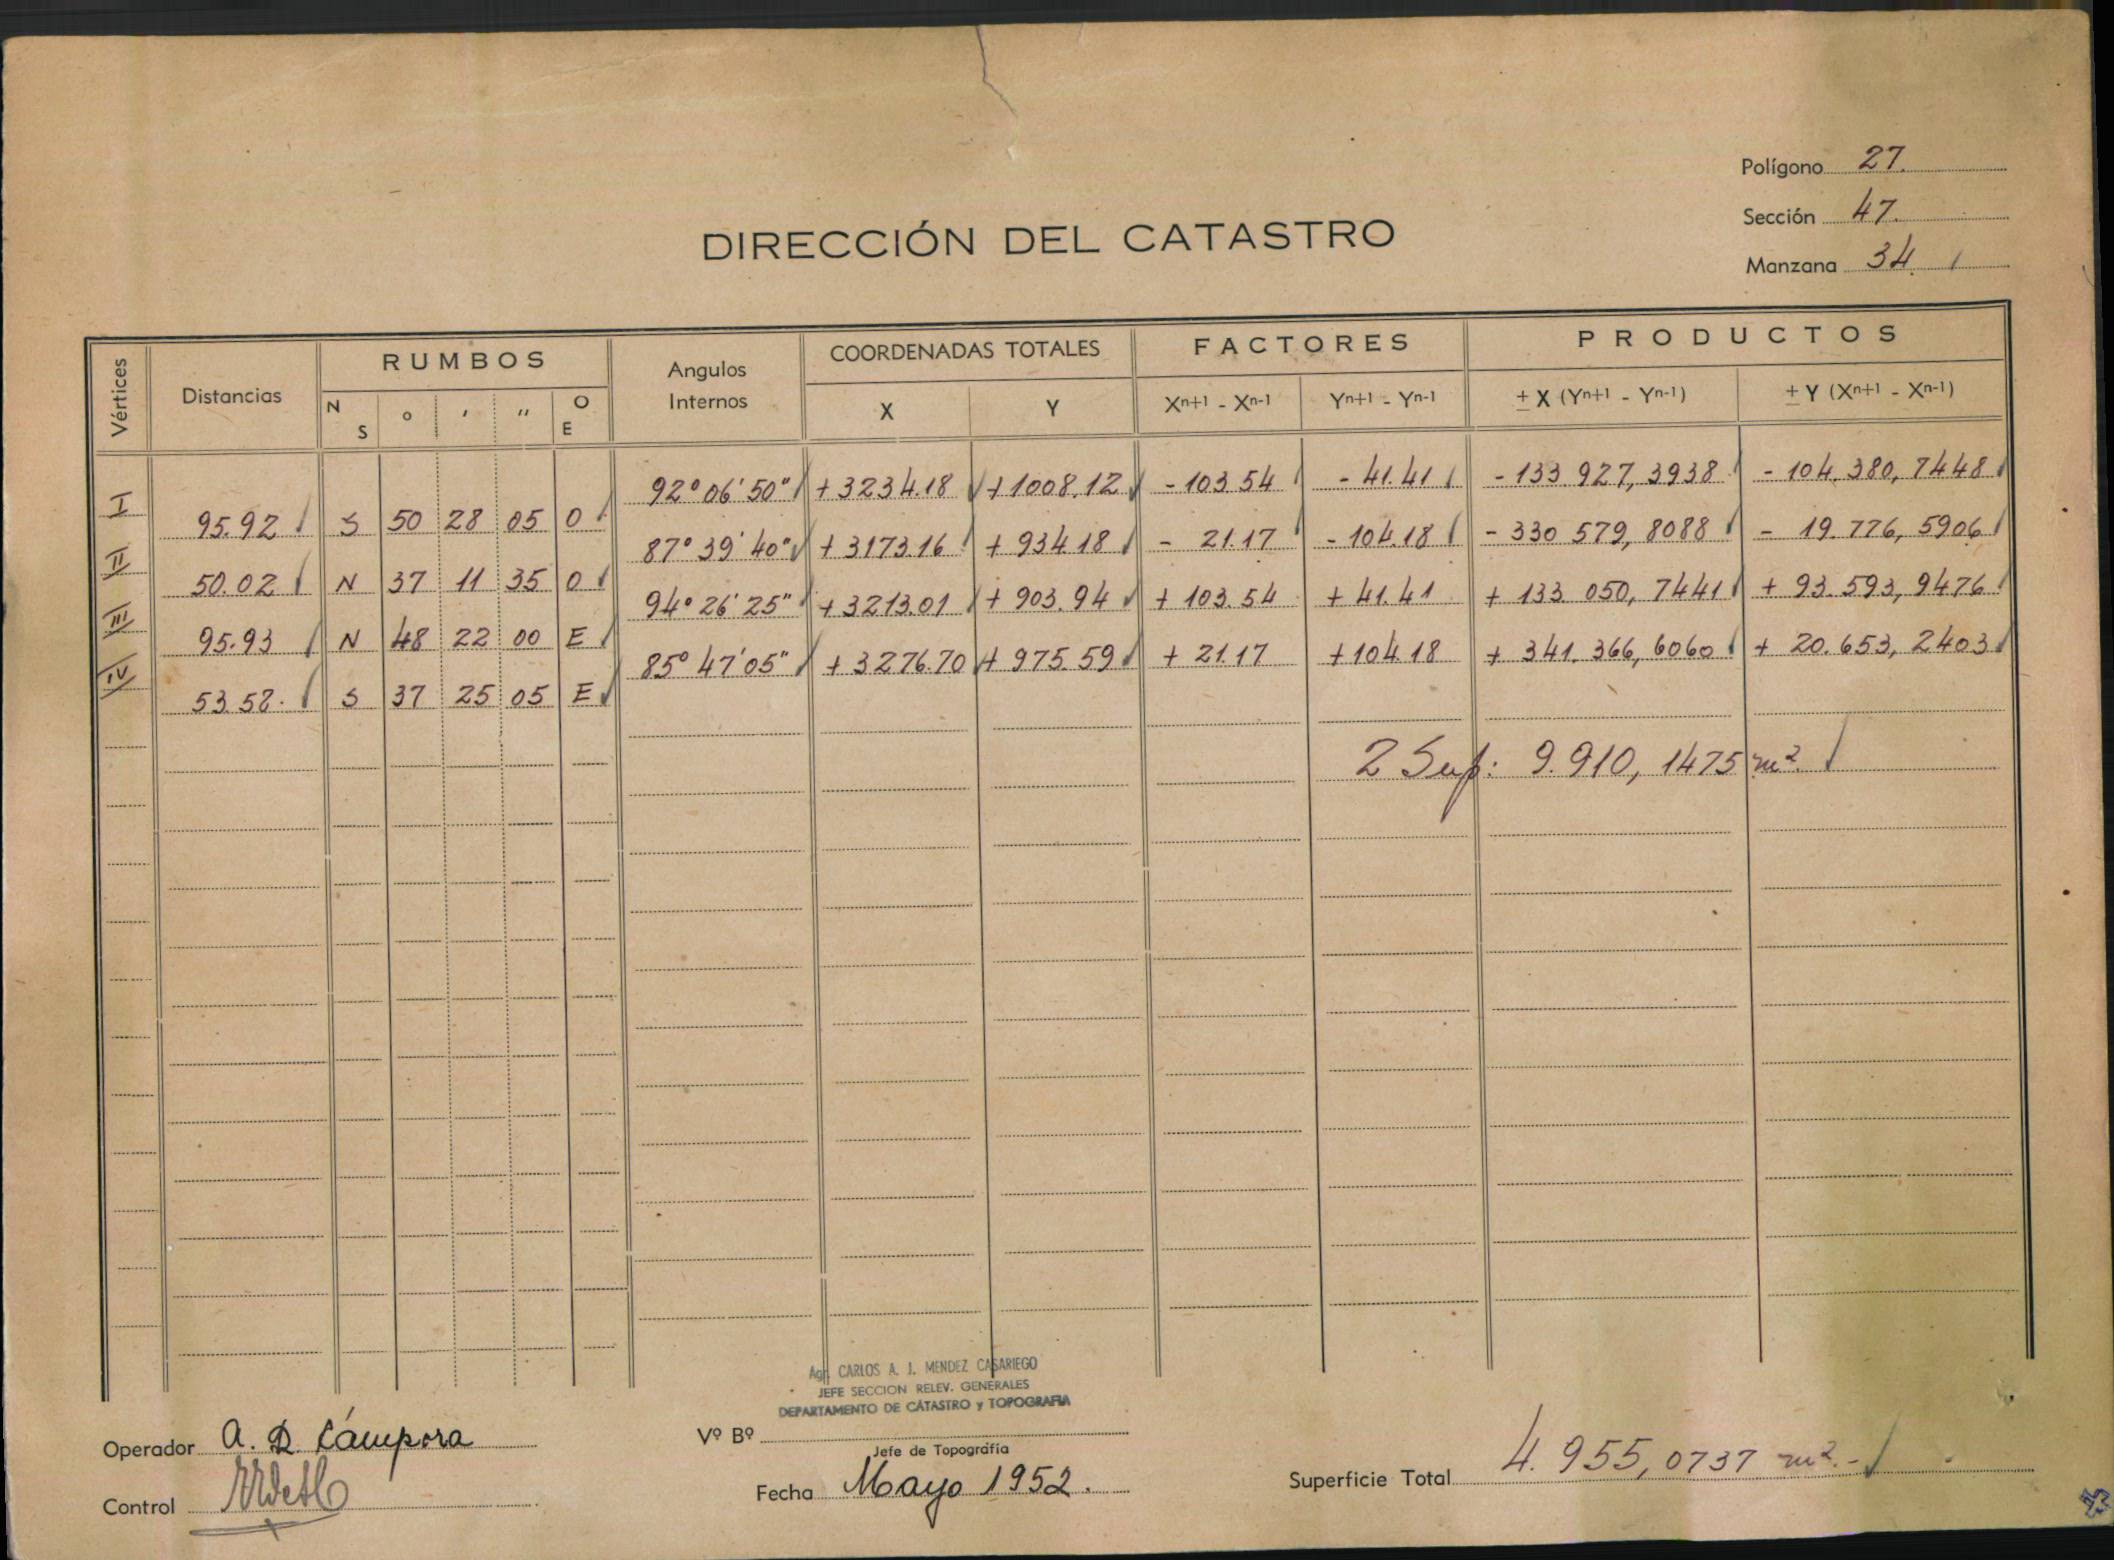 Polígono 27.
Sección 47.
Manzana 34.
DIRECCIÓN DEL CATASTRO
Vértices Distancias RUMBOS Angulos Internos COORDENADAS TOTALES FACTORES PRODUCTOS
N S ° ' " O E X Y Xn+1 - Xn-1 Yn+1 - Yn-1 ± X (Yn+1 - Yn-1) ± Y (Xn+1 - Xn-1)
92° 06' 50" +3234.18 +1008.12 -103.54 -41.41 -133 927,3938 -104.380,7448
I 95.92 S 50 28 05 O
87° 39' 40" +3173.16 +934.18 - 21.17 -104.18 -330 579,8088 - 19.776,5906
II 50.02 N 37 11 35 O
94° 26' 25" +3213.01 +903.94 +103.54 +41.41 +133.050,7441 +93.593,9476
III 95.93 N 48 22 00 E
85° 47' 05" +3276.70 +975.59 +21.17 +104.18 +341.366,6060 +20.653,2403
IV 53.52. S 37 25 05 E
2 Sup: 9.910,1475 m².
Agr. CARLOS A. J. MENDEZ CASARIEGO
JEFE SECCION RELEV. GENERALES
DEPARTAMENTO DE CATASTRO y TOPOGRAFIA
Operador A. D. Cámpora
Vº Bº
Jefe de Topografía
Control
Fecha Mayo 1952.
Superficie Total 4.955,0737 m².-